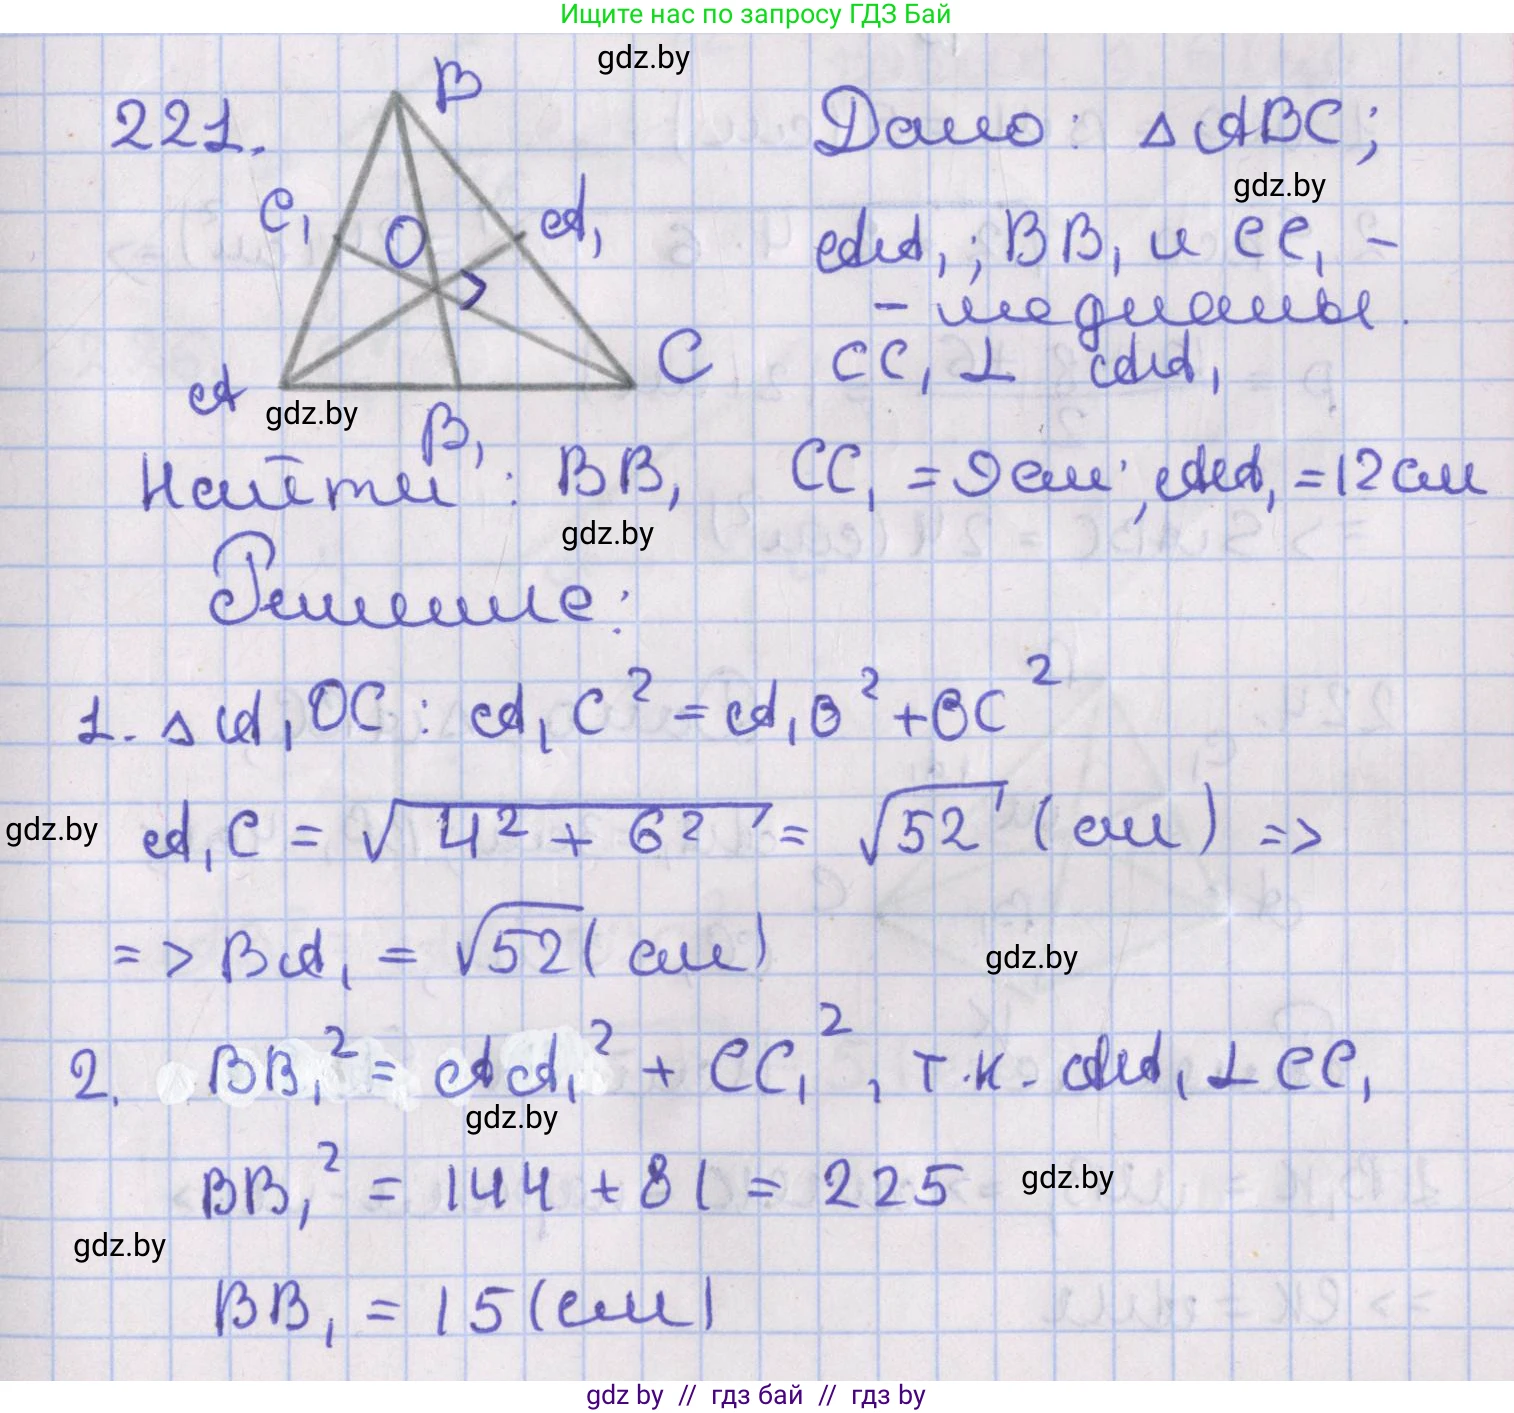 Ищите нас по запросу ГДЗ Бай
gdz.by
221.
B
C₁
O
A₁
A
C
B₁
gdz.by
Дано: △ ABC;
gdz.by
AA₁; BB₁ и CC₁ -
- медианы.
CC₁ ⊥ AA₁
Найти: BB₁ CC₁ = 9 см; AA₁ = 12 см
gdz.by
Решение:
1. △ A₁OC: A₁C² = A₁O² + OC²
gdz.by
A₁C = √4² + 6² = √52 (см) =>
=> BA₁ = √52 (см)
gdz.by
2. BB₁² = AA₁² + CC₁², т.к. AA₁ ⊥ CC₁
gdz.by
BB₁² = 144 + 81 = 225
gdz.by
gdz.by
BB₁ = 15 (см)
gdz by // гдз бай // гдз by